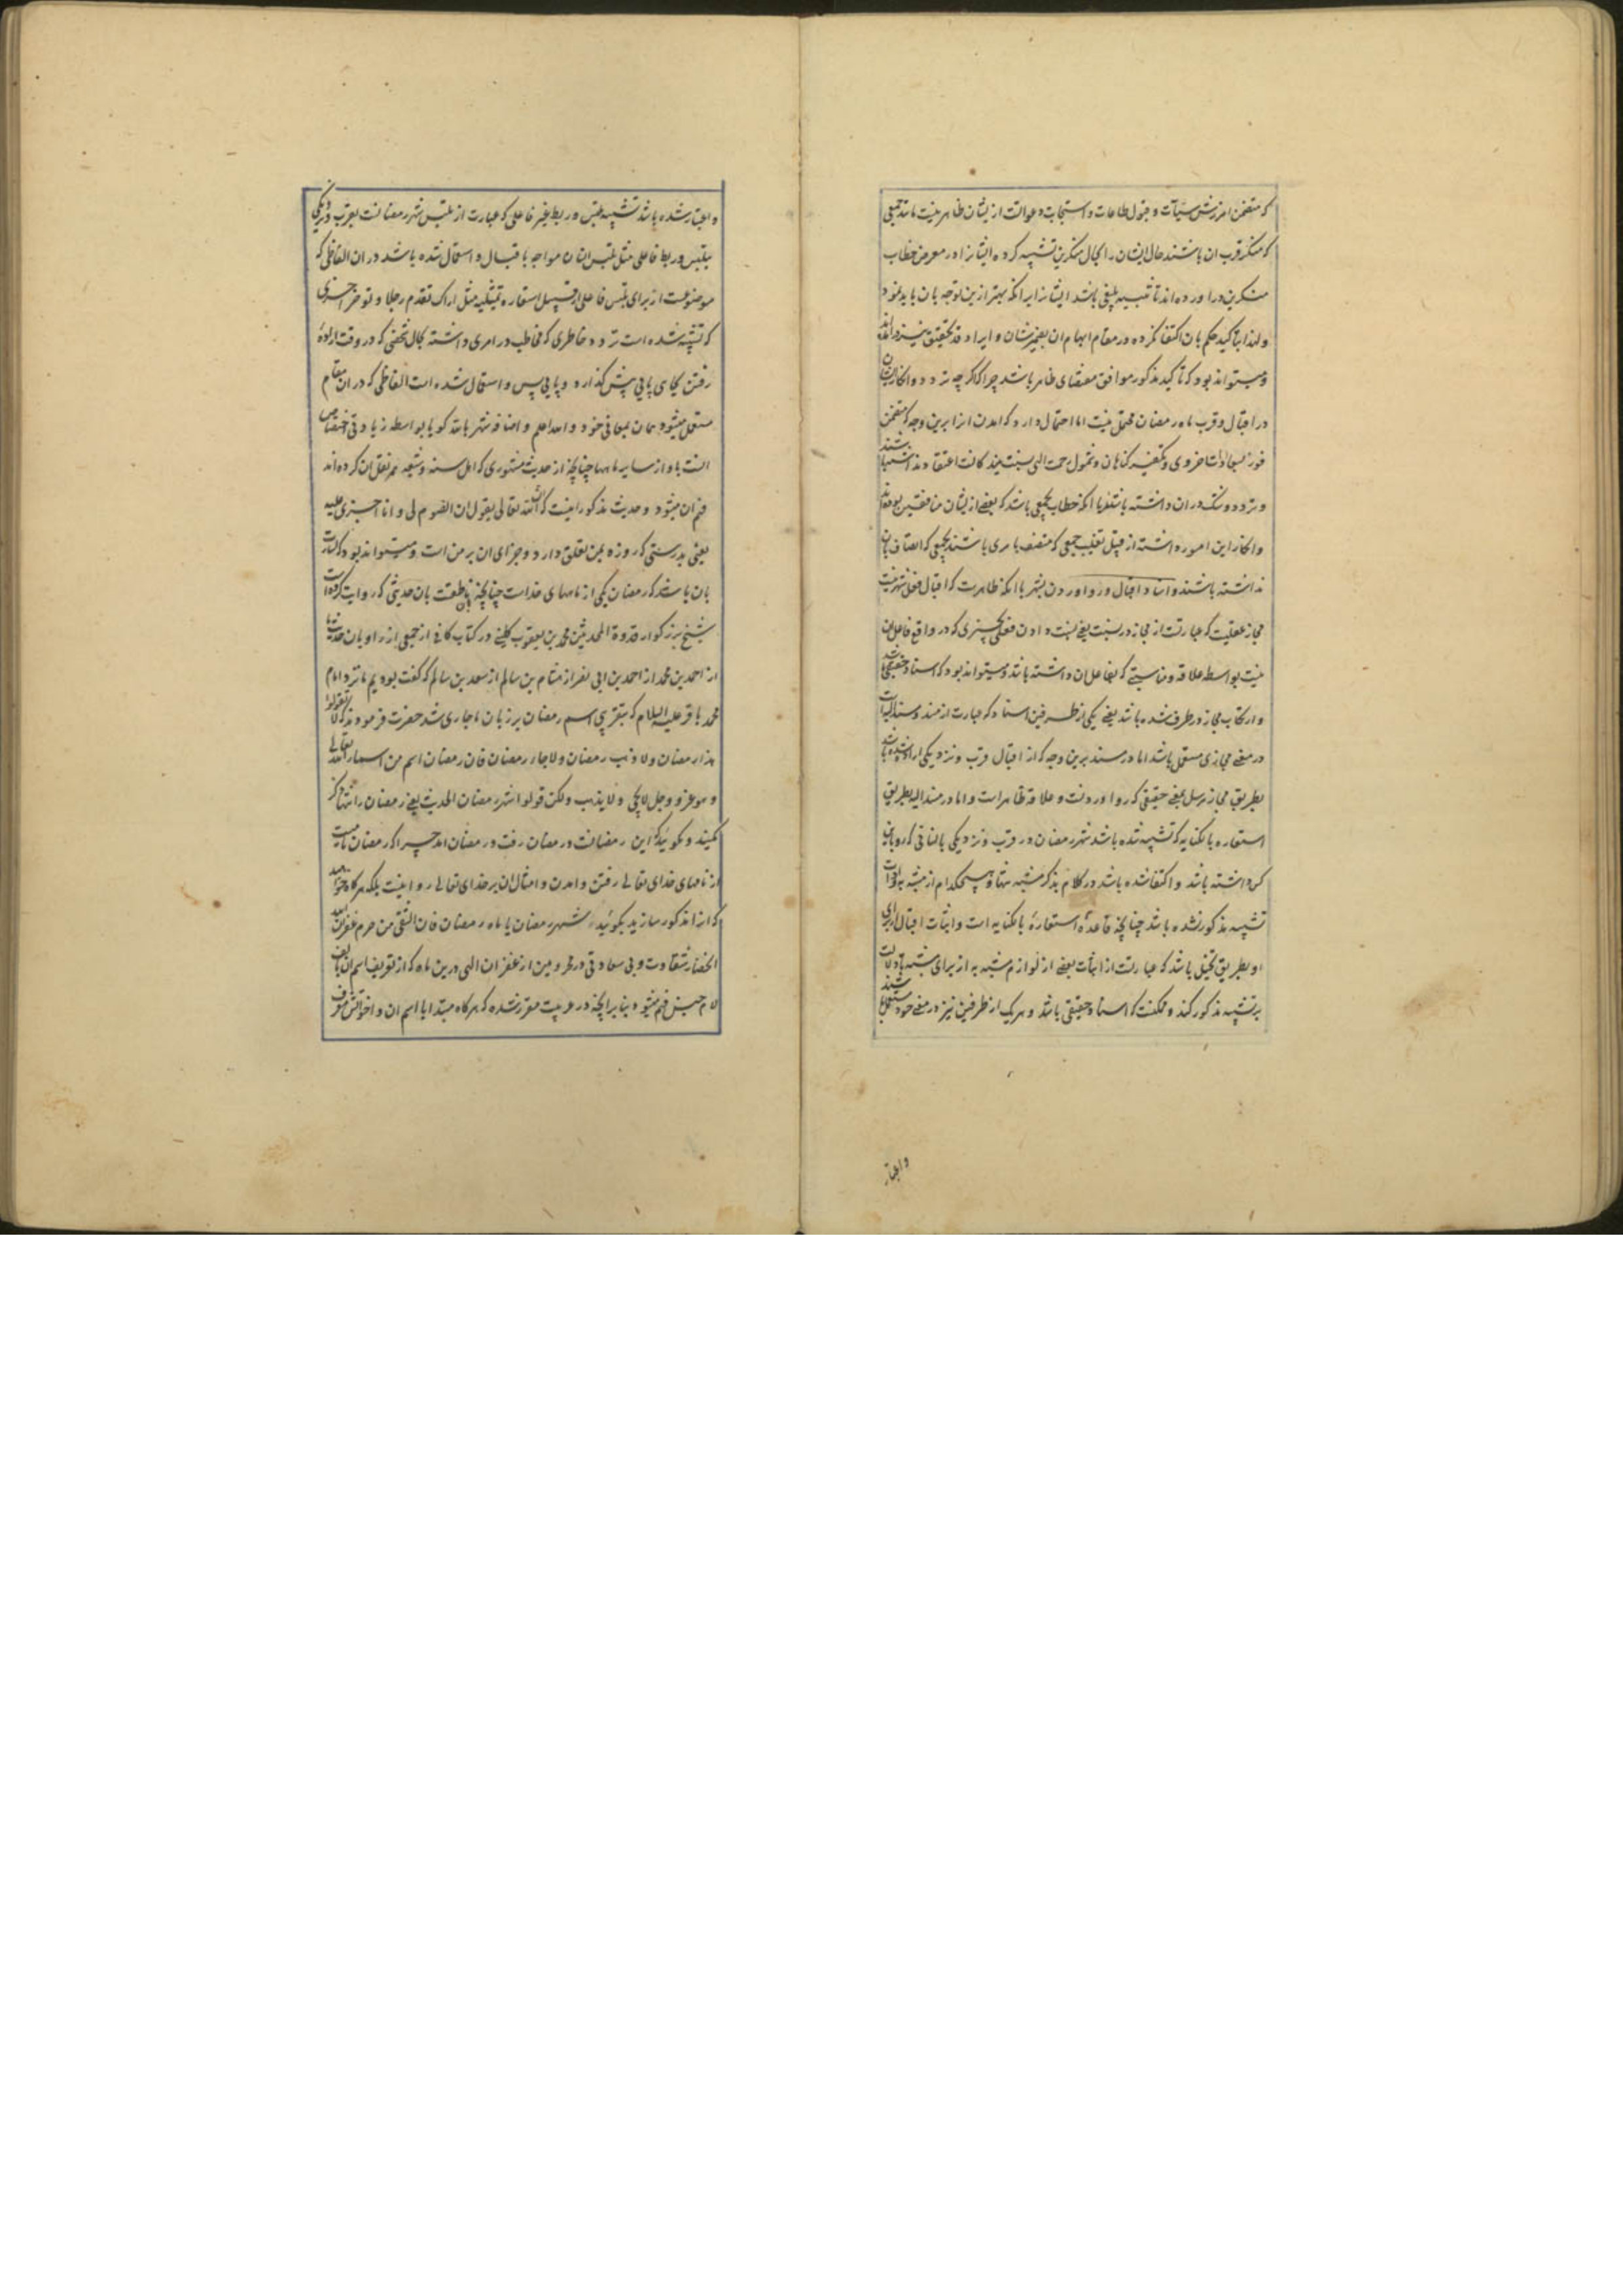 که متضمن امرزش سیآت و قبول طاعات و استجابت دعوالت از ایشان ظاهر نیست مانند جمعی
که منکر قرب ان باشند حال ایشان را بحال منکرین تشبیه کرده ایشانرا در معرض خطاب
منکرین در اورده اند تا تنبیه بلیغی باشد ایشانرا بر انکه بهتر ازین توجه بان باید نمود
و لهذا بتاکید حکم بان اکتفا نکرده در مقام ابهام ان بضمیر شان و ایراد قد تحقیق نیز در
و میتواند بود که تاکید مذکور موافق مقتضای ظاهر باشد چرا که اگر چه تردد و انکار
در اقبال و قرب ماه رمضان محتمل نیست اما احتمال دارد که امدن انرا برین وجه که متضمن
فوز بسعادات اخروی و تکفیر گناهان و شمول رحمت الهی نسبت
و تردد و شک دران داشته باشند یا انکه خطاب بجمعی باشد که بعضی از ایشان منافقین بوده
و انکار این امور داشته از قبیل تغلیب جمعی که متصف بامری باشند بجمعی که اتصاف بان
نداشته باشند و اسناد اقبال و رو اوردن بشهر با انکه ظاهرست که اقبال فعل شهر نیست
مجاز عقلیست که عبارتست از مجاز در نسبت یعنی نسبت دادن فعلی بچیزی که در واقع فاعل ان
نیست بواسطه علاقه و مناسبتی که بفاعل ان داشته باشد و میتواند بود که اسناد حقیقی باشد
و ارتکاب مجاز در طرف شده باشد یعنی یکی از طرفین اسناد که عبارت از مسند و مسند الیه است
در معنی مجازی مستعمل باشد اما در مسند برین وجه که از اقبال قرب و نزدیکی اراده شده باشد
بطریق مجاز مرسل بمعنی حقیقی که رو اوردنست و علاقه ظاهر است و اما در مسند الیه بطریق
استعاره بالکنایه که تشبیه شده باشد شهر رمضان در قرب و نزدیکی بانسانی که رو باین
کس داشته باشد و اکتفا شده باشد در کلام بذکر مشبه تنها و هیچکدام از مشبه به و ادوات
تشبیه مذکور نشده باشد چنانچه قاعدهٔ استعارهٔ بالکنایه است و اثبات اقبال از برای
او بطریق تخییل باشد که عبارتست از اثبات بعضی از لوازم مشبه به از برای مشبه تا دلالت
بر تشبیه مذکور کند و ممکنست که اسناد حقیقی باشد و هریک از طرفین نیز در معنی خود مستعمل باشند
و اعتبار
و اعتبار شده باشد تشبیه تلبس و ربط غیر فاعلی که عبارت از تلبس شهر رمضانست بقرب و نزدیکی
بتلبس و ربط فاعلی مثل تلبس انسان مواجه باقبال و استعمال شده باشد دران الفاظی که
موضوعست از برای تلبس فاعلی از قبیل استعاره تمثیلیه مثل اراک تقدم رجلا و توخر اخری
که تشبیه شده است تردد خاطری که مخاطب در امری داشته بحال شخصی که در وقت ارادهٔ
رفتن بجای پایی پیش گذارد و پایی پس و استعمال شده است الفاظی که در ان مقام
مستعمل میشود همان بمعانی خود و الله اعلم و اضافه شهر بالله گویا بواسطه زیادتی اختصاص
انست باو از سایر ماهها چنانچه از حدیث مشهوری که اهل سنه و شیعه همه نقل ان کرده اند
فهم ان میشود و حدیث مذکور اینست که ان الله تعالی یقول ان الصوم لی و انا اجزی علیه
یعنی بدرستی که روزه بمن تعلق دارد و جزای ان بر من است و میتواند بود که اشارت
بان باشد که رمضان یکی از نامهای خداست چنانچه ناطقست بان حدیثی که روایت کرده
شیخ بزرگوار قدوة المحدثین محمد بن یعقوب کلینی در کتاب کافی از جمعی از راویان
از احمد بن محمد از احمد بن ابی نصر از هشام بن سالم از سعد بن سالم که گفت بودیم ما نزد امام
محمد باقر علیه السلام که بتقریبی اسم رمضان بر زبان ما جاری شد حضرت فرمودند که لا تقولوا
هذا رمضان و لا ذهب رمضان و لا جاء رمضان فان رمضان اسم من اسماء الله تعالی
و هو عز و جل لا یجی و لا یذهب و لکن قولوا شهر رمضان الحدیث یعنی رمضان را تنها ذکر
مکنید و مگویید که این رمضانست و رمضان رفت و رمضان امد چرا که رمضان نامیست
از نامهای خدای تعالی رفتن و امدن و امثال ان بر خدای تعالی روا نیست بلکه هرگاه خواهید
که انرا مذکور سازید بگویید شهر رمضان یا ماه رمضان فان الشقی من حرم غفران الله
انحصار شقاوت و بی سعادتی در محرومین از غفران الهی درین ماه که از تعریف اسم ان بالف
لام جنس فهم میشود بنابر انچه در عربیت مقرر شده که هرگاه مبتدا یا اسم ان و اخواتش معرف